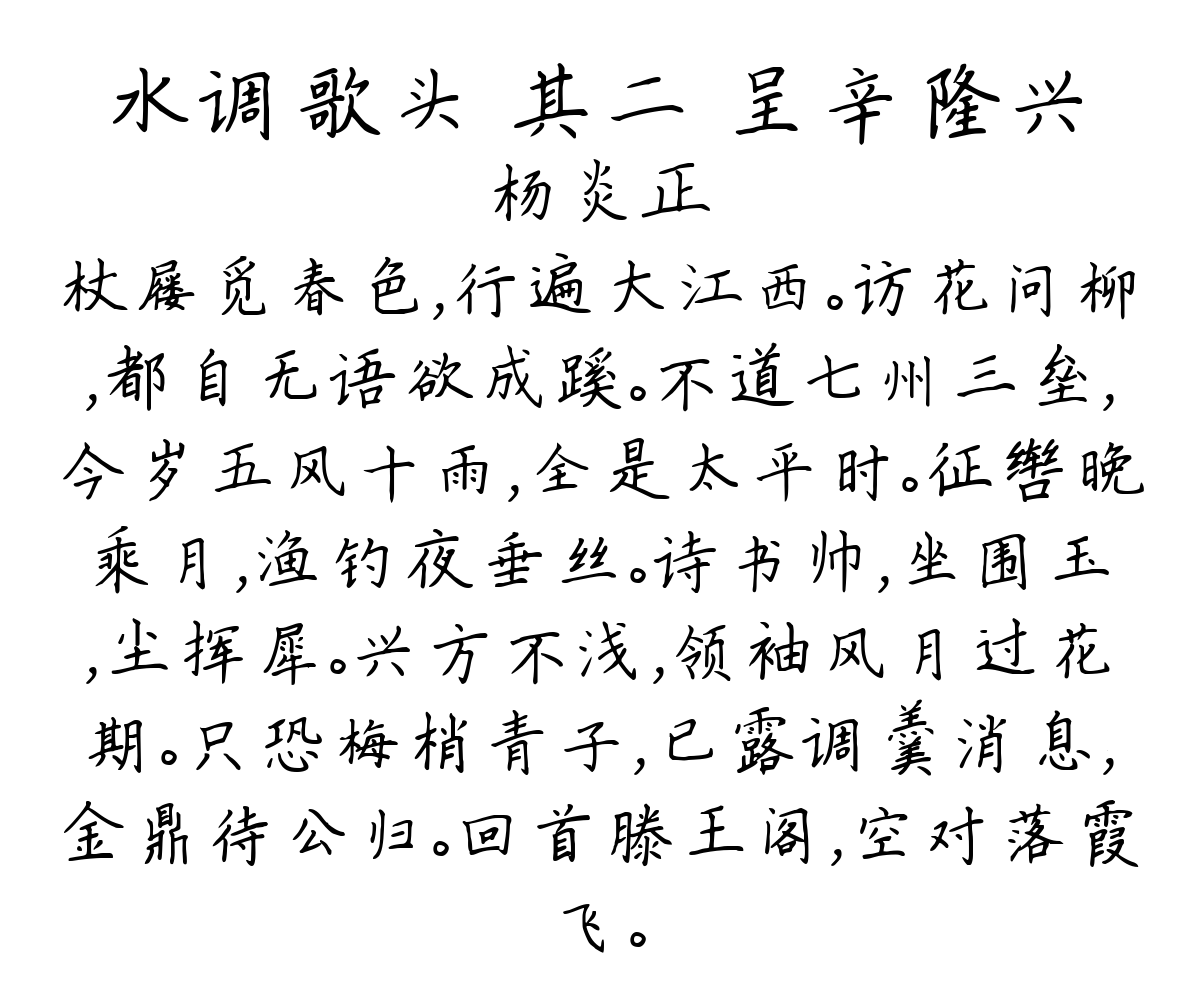 水调歌头 其二 呈辛隆兴
杨炎正
杖屦觅春色,行遍大江西。访花问柳
,都自无语欲成蹊。不道七州三垒,
今岁五风十雨,全是太平时。征辔晚
乘月,渔钓夜垂丝。诗书帅,坐围玉
,尘挥犀。兴方不浅,领袖风月过花
期。只恐梅梢青子,已露调羹消息,
金鼎待公归。回首滕王阁,空对落霞
飞。